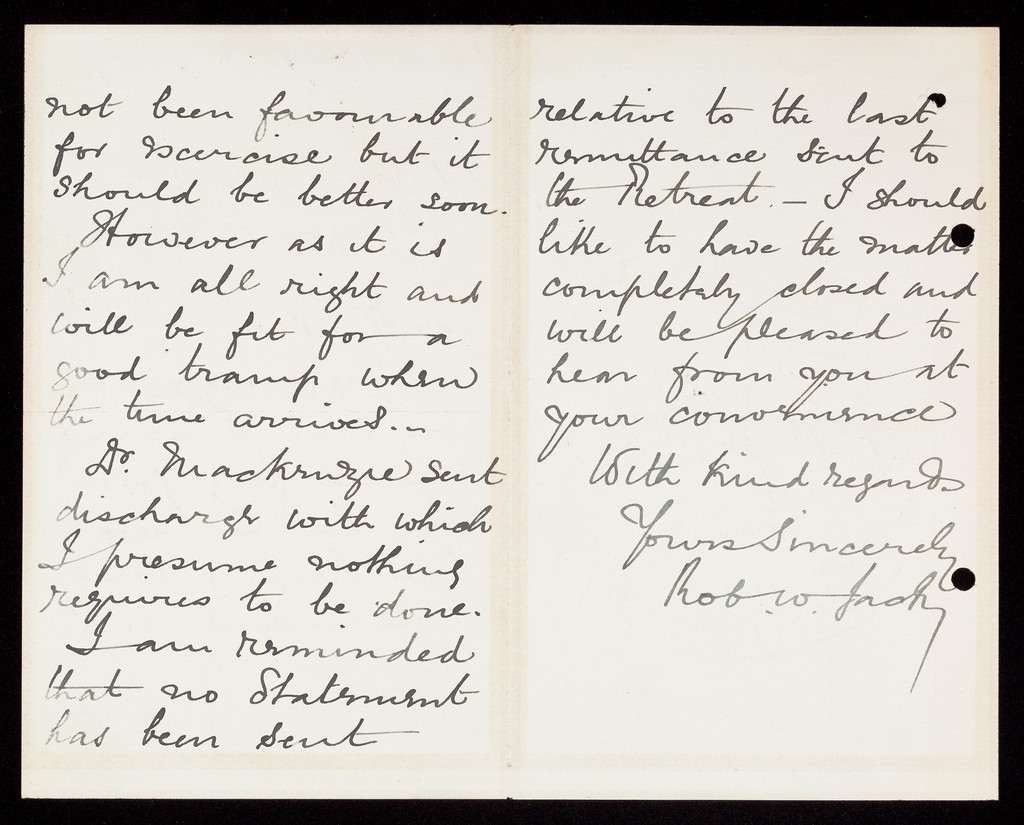 not been favourable
for exercise but it
should be better soon.
However as it is
I am all right and
will be fit for a
good tramp when
the time arrives..
Dr. Mackenzie sent
discharge with which
I presume nothing
requires to be done.
I am reminded
that no Statement
has been sent
relative to the last
remittance sent to
the Retreat. - I should
like to have the matter
completely closed and
will be pleased to
hear from you at
your convenience
With kind regards
Yours Sincerely
Rob. W. Jack